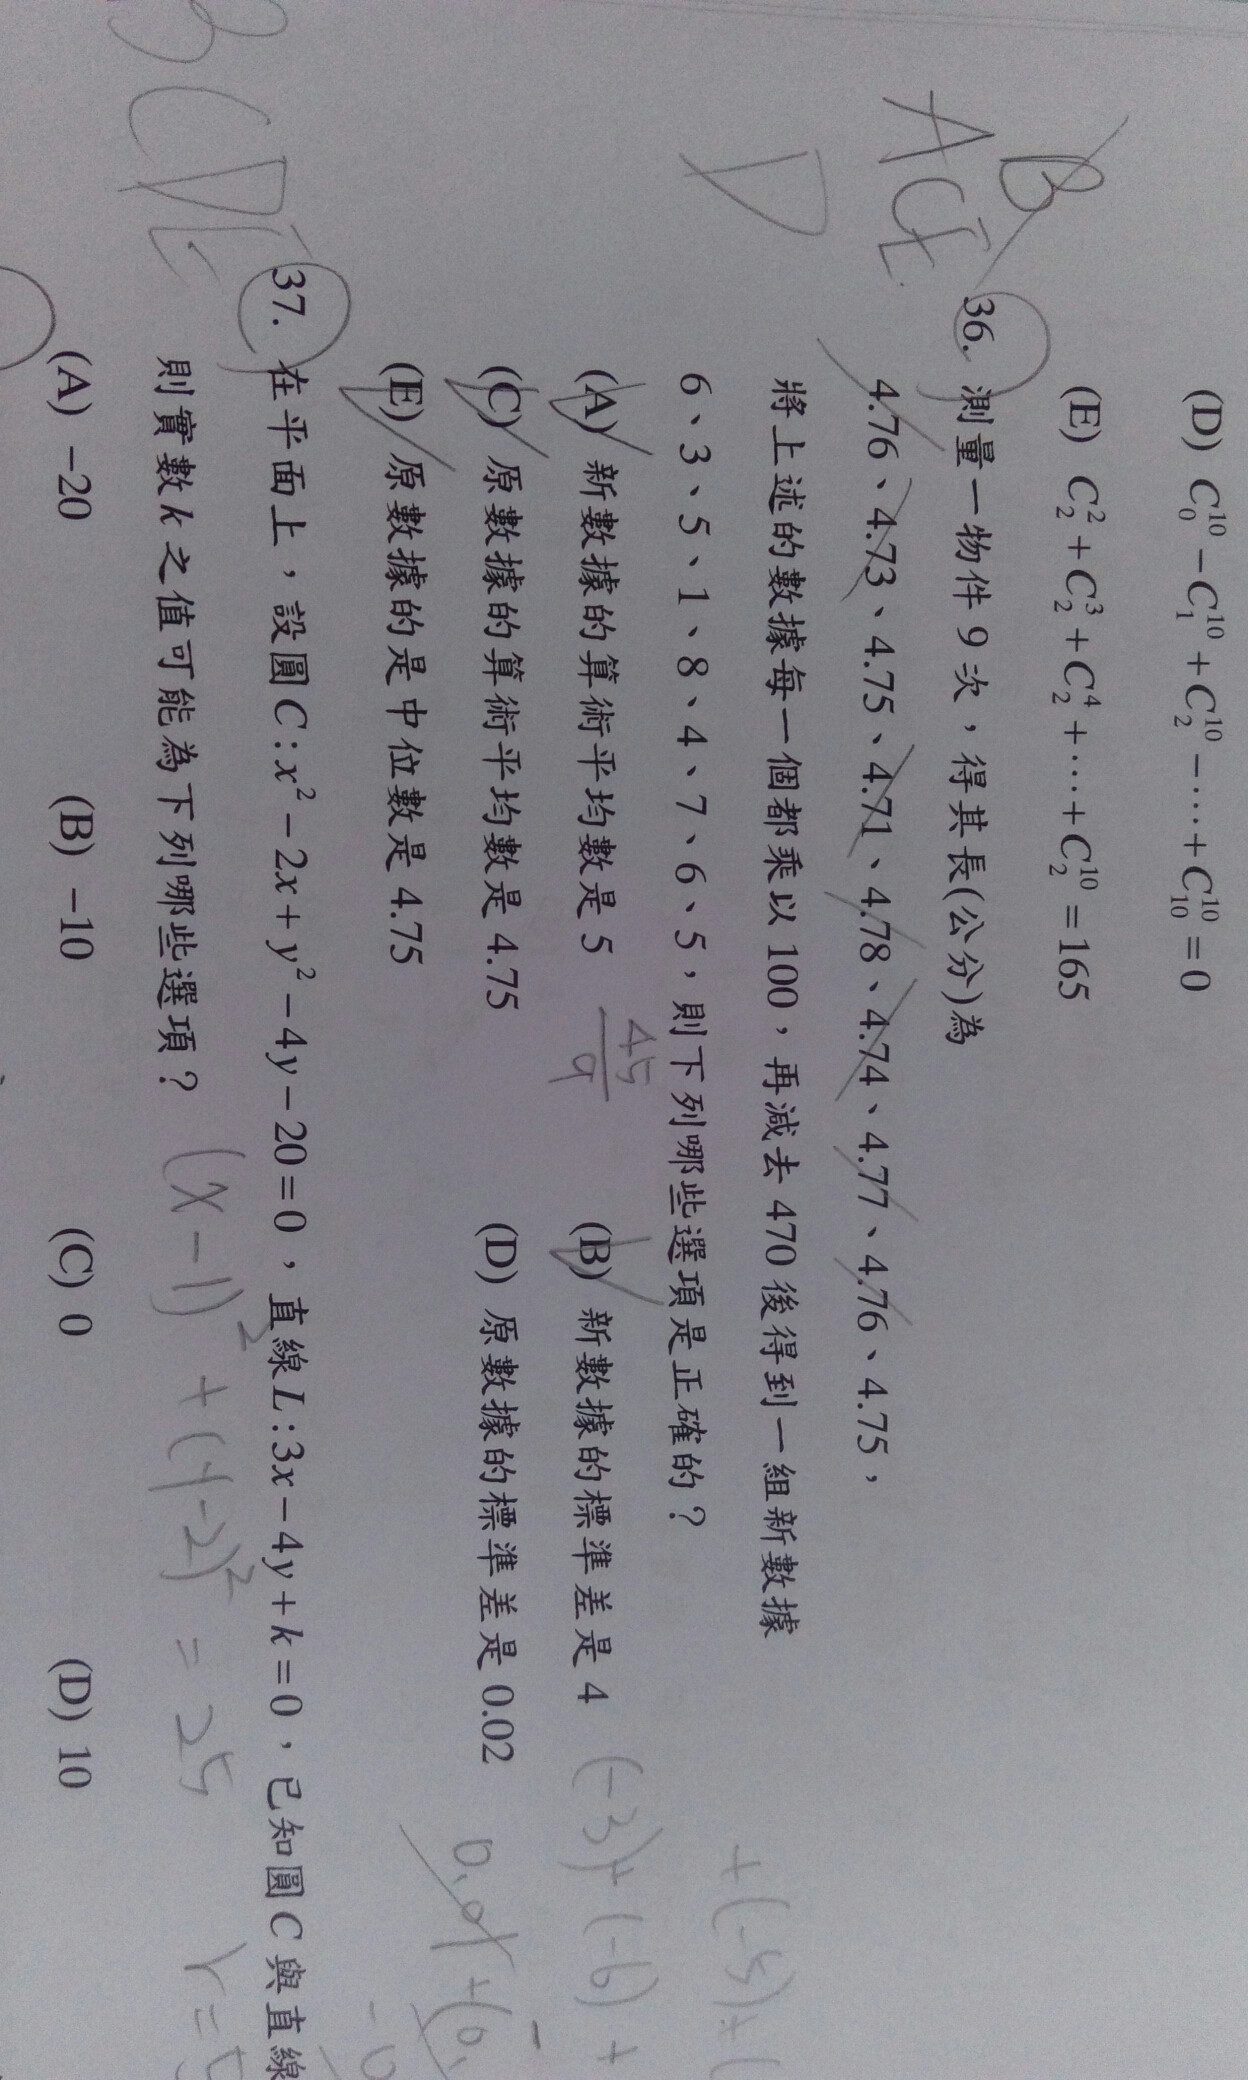 (D) C₀¹⁰ − C₁¹⁰ + C₂¹⁰ − … + C₁₀¹⁰ = 0
(E) C₂² + C₂³ + C₂⁴ + … + C₂¹⁰ = 165
B
ACE
D
36. 測量一物件 9 次，得其長(公分)為
4.76、4.73、4.75、4.71、4.78、4.74、4.77、4.76、4.75，
將上述的數據每一個都乘以 100，再減去 470 後得到一組新數據
6、3、5、1、8、4、7、6、5，則下列哪些選項是正確的？
+(-5)+(
(A) 新數據的算術平均數是 5 45/9 (B) 新數據的標準差是 4 (-3)+(-6)+
(C) 原數據的算術平均數是 4.75 (D) 原數據的標準差是 0.02
(E) 原數據的是中位數是 4.75
BCDE
37. 在平面上，設圓 C : x² − 2x + y² − 4y − 20 = 0，直線 L : 3x − 4y + k = 0，已知圓 C 與直線
則實數 k 之值可能為下列哪些選項？ (x-1)² + (y-2)² = 25 r=5
(A) −20 (B) −10 (C) 0 (D) 10